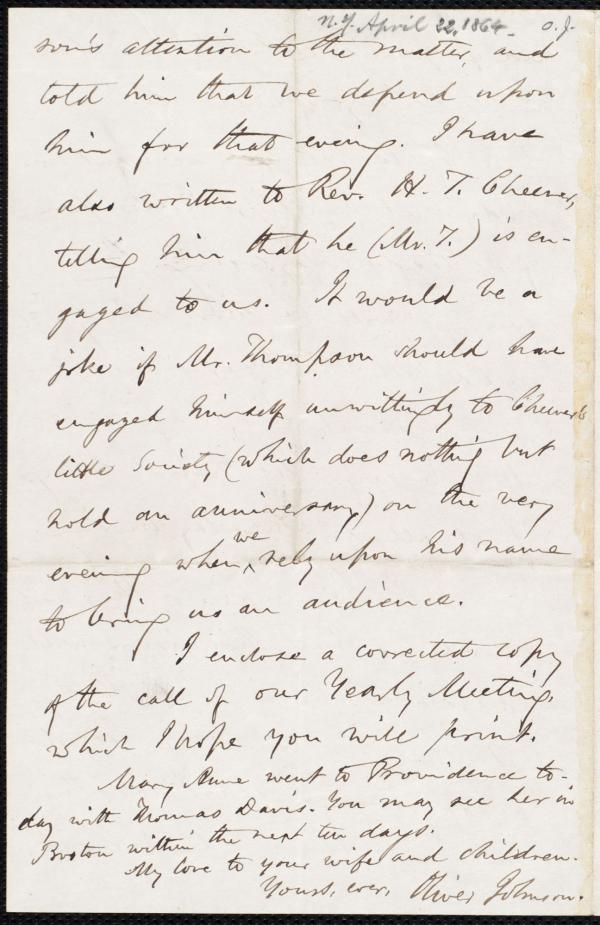 N.Y. April 22, 1864. O.J.
son's attention to the matter, and
told him that we depend upon
him for that evening. I have
also written to Rev. H. T. Cheever,
telling him that he (Mr. T.) is en-
gaged to us. It would be a
joke if Mr. Thompson should have
engaged himself unwittingly to Cheever's
little Society (which does nothing but
hold an anniversary) on the very
evening when we rely upon his name
to bring us an audience.
I enclose a corrected copy
of the call of our Yearly Meeting,
which I hope you will print.
Mary Anne went to Providence to-
day with Thomas Davis. You may see her in
Boston within the next ten days.
My love to your wife and children.
Yours, ever, Oliver Johnson.